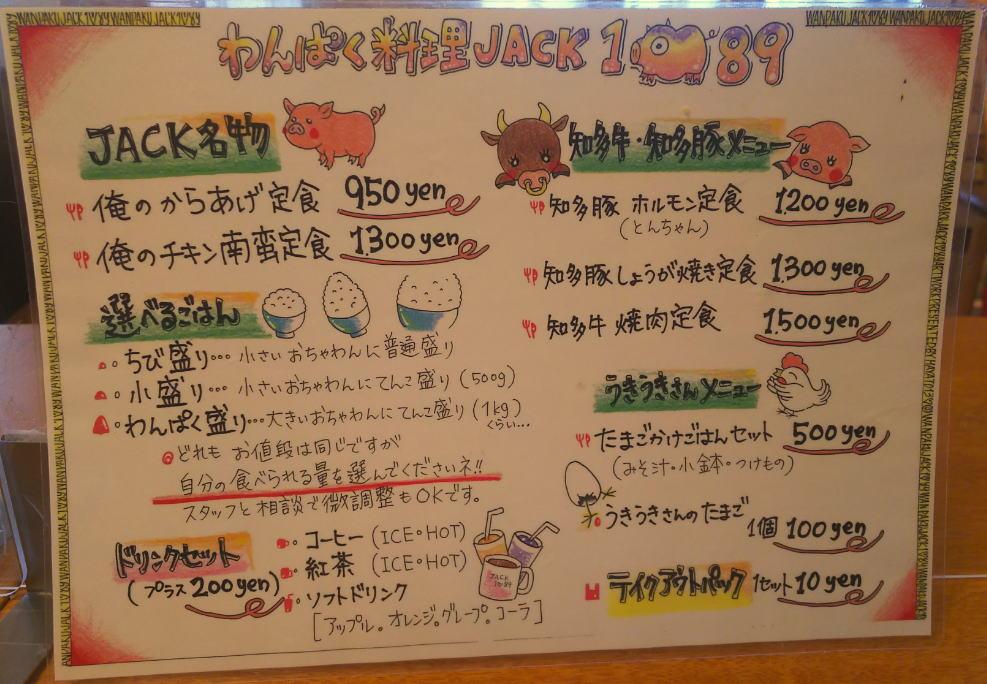 WANPAKU JACK 1089 WANPAKU JACK 1089
わんぱく料理JACK 1089
JACK名物
俺のからあげ定食 950 yen
俺のチキン南蛮定食 1.300 yen
選べるごはん
ちび盛り… 小さいおちゃわんに普通盛り
小盛り… 小さいおちゃわんにてんこ盛り(500g)
わんぱく盛り…大きいおちゃわんにてんこ盛り(1kg)
くらい…
どれも お値段は同じですが
自分の食べられる量を選んでくださいネ!!
スタッフと相談で微調整もOKです。
ドリンクセット
(プラス 200 yen)
コーヒー (ICE・HOT)
紅茶 (ICE・HOT)
ソフトドリンク
[アップル。オレンジ。グレープ。コーラ]
JACK
1089
知多牛・知多豚メニュー
知多豚 ホルモン定食 1.200 yen
(とんちゃん)
知多豚しょうが焼き定食 1.300 yen
知多牛 焼肉定食 1.500 yen
うきうきさんメニュー
たまごかけごはんセット 500 yen
(みそ汁・小鉢・つけもの)
うきうきさんのたまご 1個 100 yen
テイクアウトパック 1セット 10 yen